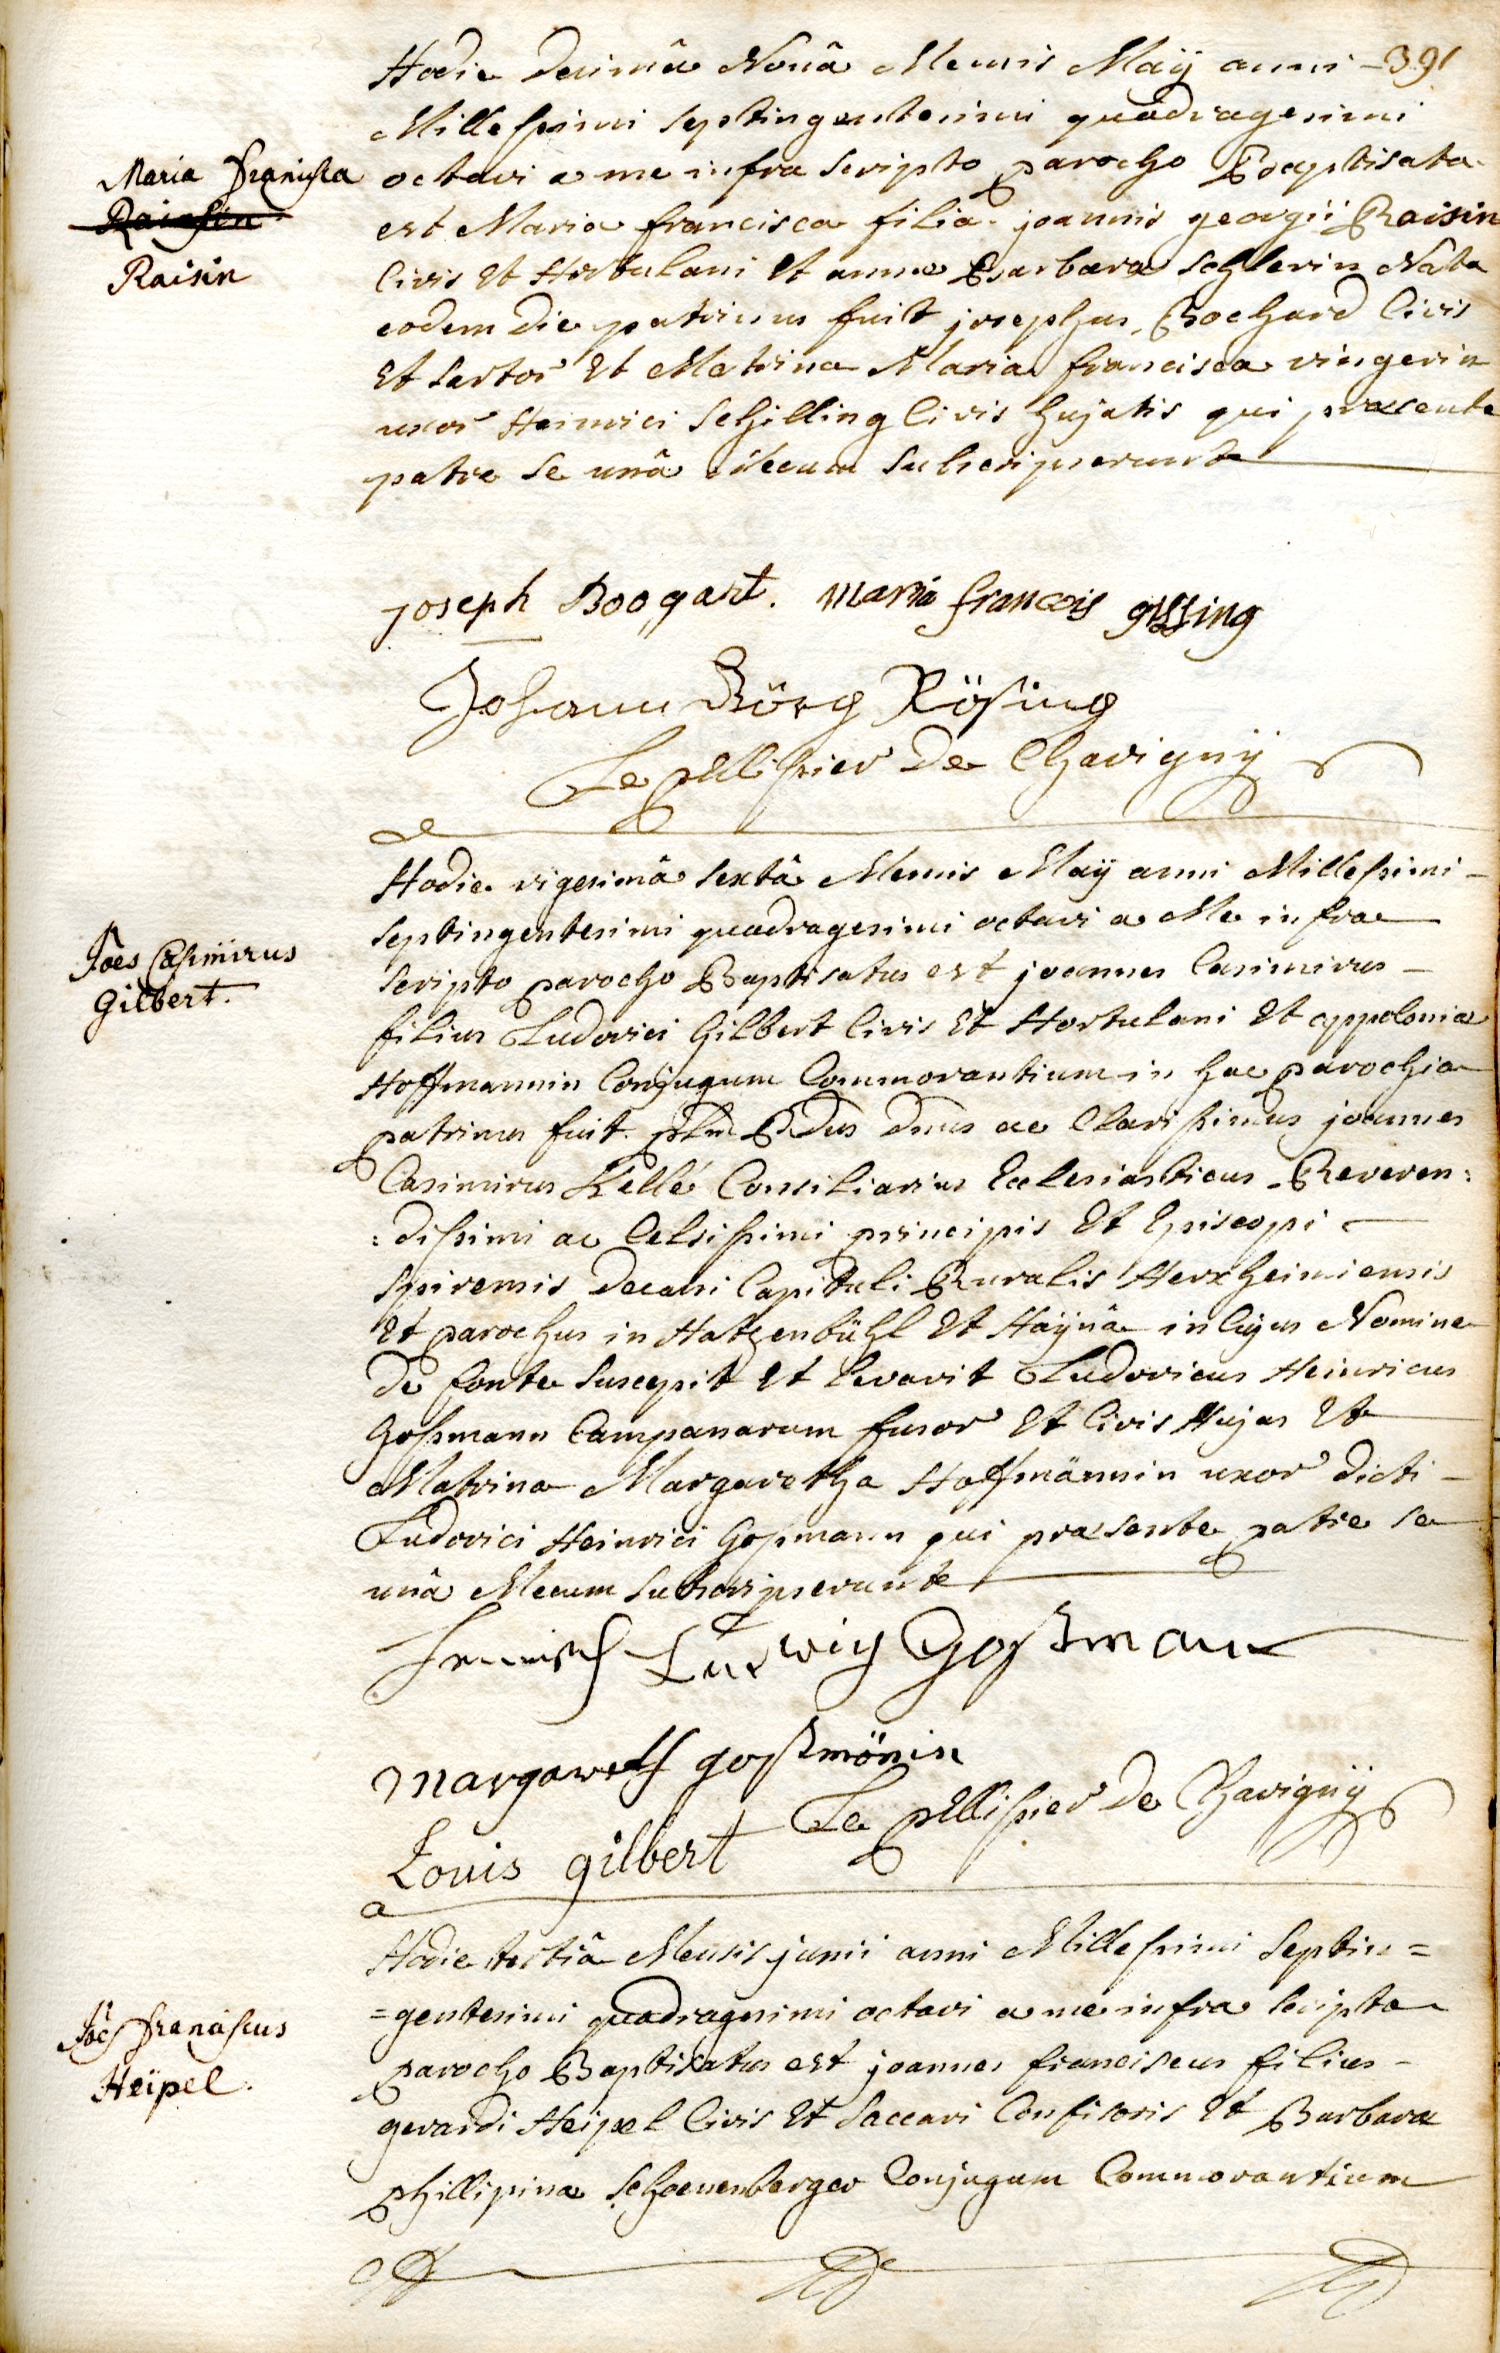 391
Hodie decimâ Nonâ Mensis Maÿ anni -
Millesimi septingentesimi quadragesimi
Maria Francisca
Raisin
octavi a me infra scripto parocho Baptisata
est Maria francisca filia joannis georgii Raisin
Civis Et Hortulani Et annæ Barbaræ Schlerin Nata
eodem die patrinus fuit josephus Bochard Civis
Et Sartor Et Matrina Maria francisca vingerin
uxor Heinrici Schilling Civis hujatis qui præsente
patre se unâ Mecum Subscripserunt
joseph Boogart. maria francois gissing
Johann Görg Rösing
Le pellissier de Chavignÿ
Hodie vigesimâ sextâ Mensis Maÿ anni Millesimi -
Joes Casimirus
Gilbert.
septingentesimi quadragesimi octavi a Me infra
scripto parocho Baptisatus est joannes Casimirus -
filius Ludovici Gilbert Civis Et Hortulani Et appoloniæ
Hoffmannin Conjugum Commorantium in hac parochia
patrinus fuit plm Rdus dnus ac Clarissimus joannes
Casimirus Kellé Consiliarius Ecclesiasticus Reveren:
:dissimi ac Celsissimi principis Et Episcopi
Spirensis Decani Capituli Ruralis Herxheimiensis
Et parochus in Hatzenbühl Et Haÿnâ in Cujus Nomine
de fonte suscepit Et Levavit Ludovicus Heinricus
Goßmann Campanarum fusor Et Civis Hujas Et
Matrina Margaretha Hoffmännin uxor dicti -
Ludovici Heinrici Goßmann qui præsente patre se
unâ Mecum subscripserunt
Henrich Ludwig Goßman
Margareth goßmönin
Le pellissier de Chavignÿ
Louis gilbert
Hodie tertiâ Mensis junii anni Millesimi Septin=
=gentesimi quadragesimi octavi a me infra scripto
Joes Franciscus
Heipel.
parocho Baptisatus est joannes franciscus filius -
gerardi Heipel Civis Et Saccari Confisoris Et Barbaræ
phillipinæ Schoenenberger Conjugum Commorantium